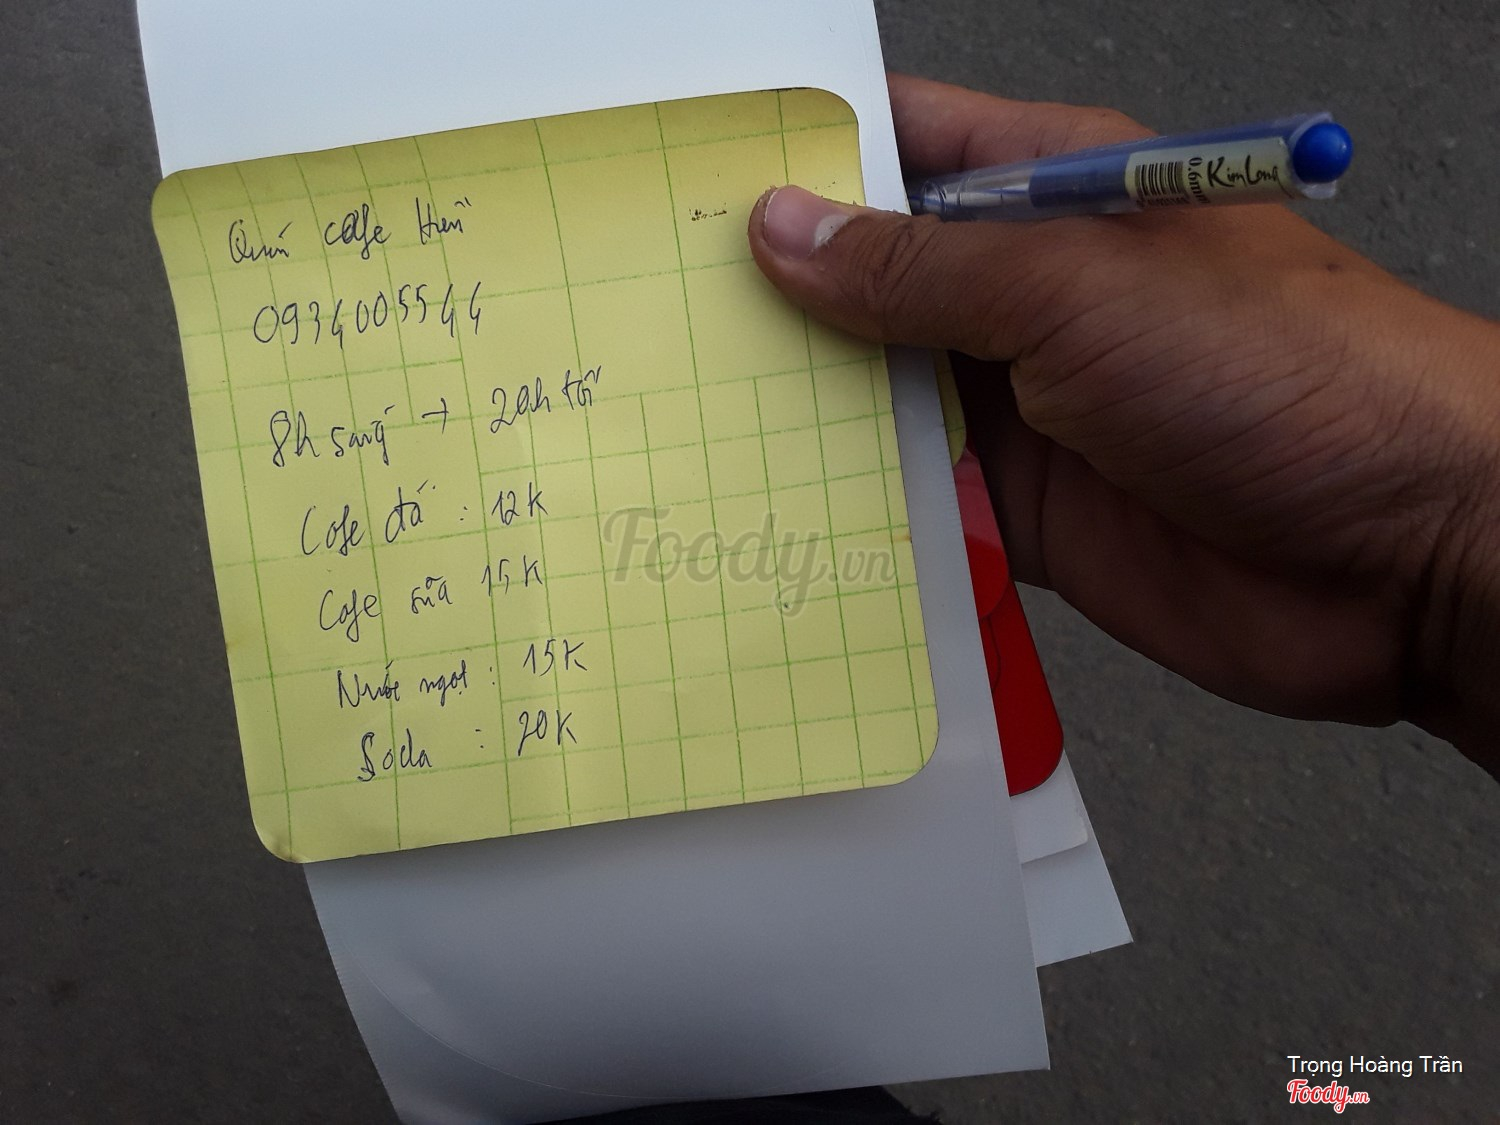 Quán cafe Hiền
0934005544
8h sáng → 20h tối
Cafe đá : 12K
Cafe sữa 15K
Nước ngọt : 15K
Soda : 20K
0.6mm KimLong
Foody.vn
Trọng Hoàng Trần
Foody.vn